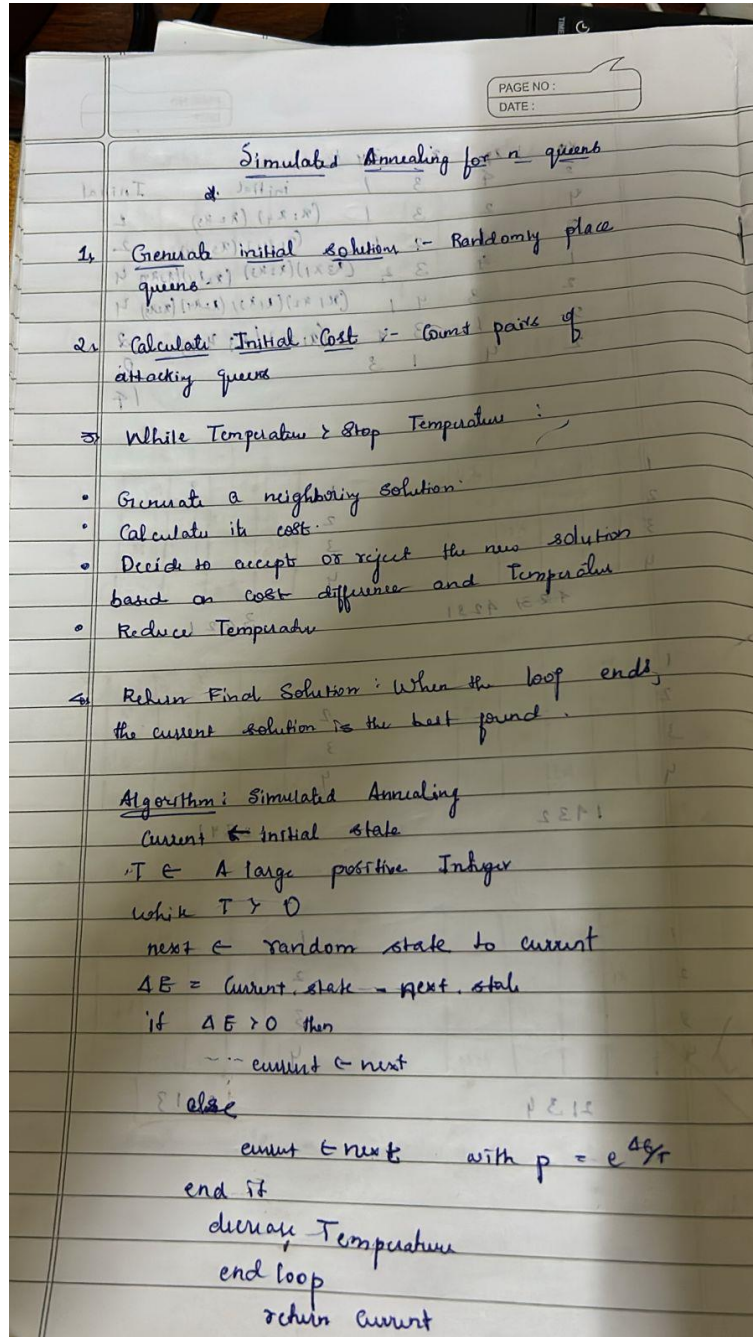 TIME
PAGE NO :
DATE :
Simulated Annealing for n queens
1, Generate initial solution :- Randomly place
queens.
2, Calculate Initial Cost :- Count pairs of
attacking queens
3, While Temperature > Stop Temperature :
• Generate a neighboring solution.
• Calculate its cost.
• Decide to accepts or reject the new solution
based on cost difference and Temperature
• Reduce Temperature
4, Return Final Solution : When the loop ends,
the current solution is the best found .
Algorithm : Simulated Annealing
Current ← initial state
T ← A large positive Integer
while T > 0
next ← random state to current
ΔE = Current.state - next.state
if ΔE > 0 then
current ← next
else
current ← next with p = e^ΔE/T
end if
decrease Temperature
end loop
return current